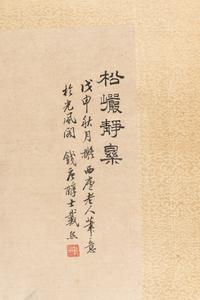 松巖靜寨
戊申秋月撫西廬老人筆意
於光風閣 錢唐醇士戴熙